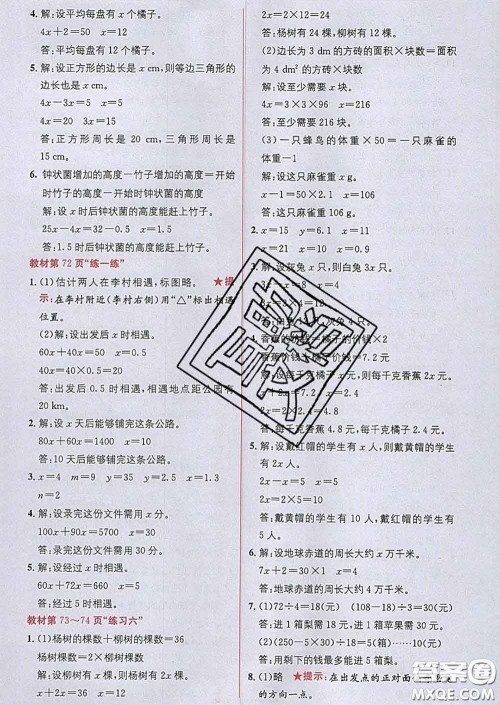 4. 解:设平均每盘有 x 个橘子。
4x+2=50　x=12
答:设平均每盘有 12 个橘子。
5. 解:设正方形的边长是 x cm,则等边三角形的
边长也是 x cm。
4x-3x=5　x=5
4x=20　3x=15
答:正方形周长是 20 cm,三角形周长是
15 cm。
6. 钟状菌增加的高度-竹子增加的高度=开
始时竹子的高度-开始时钟状菌的高度
解:设 x 时后钟状菌的高度能赶上竹子。
25x-4x=32-0.5　x=1.5
答:1.5 时后钟状菌的高度能赶上竹子。
教材第 72 页“练一练”
1. (1)估计两人在李村相遇,标图略。 ★提
示:在李村附近(李村右侧)用“△”标出相遇
位置。
(2)解:设出发后 x 时相遇。
60x+40x=50　x=0.5
40x=20
答:出发后 0.5 时相遇,相遇地点距公园有
20 km。
2. 解:设 x 天后能够铺完这条公路。
80x+60x=1400　x=10
答:10 天后能够铺完这条公路。
3. x=4　m=9　y=35　x=1.2
n=2
4. 解:设录完这份文件需用 x 分。
100x+90x=5700　x=30
答:录完这份文件需用 30 分。
5. 解:设经过 x 秒相遇。
60x+72x=660　x=5
答:经过 5 秒相遇。
教材第 73~74 页“练习六”
1. (1)杨树的棵数+柳树的棵数=36
杨树棵数=2×柳树棵数
解:设柳树有 x 棵,则杨树有 2x 棵。
x+2x=36　x=12
2x=2×12=24
答:杨树有 24 棵,柳树有 12 棵。
(2)边长为 3 dm 的方砖的面积×块数=面积
为 4 dm² 的方砖的面积×块数
解:设至少需要 x 块。
4x=3×3×96　x=216
答:至少需要 216 块。
(3)一只蜂鸟的体重×50=一只麻雀的
体重-1
解:设这只麻雀重 x g。
x-1=2.1×50　x=106
答:这只麻雀重 106 g。
2. x=8　x=15　x=116
x=21　x=102　x=20
3. 解:设灰兔 x 只,则白兔 3x 只。
香蕉价钱=2×橘子价钱
2x=2×2.4=4.8
答:每千克香蕉 4.8 元,每千克橘子 2.4 元。
5. 解:设戴红帽的学生有 x 人,则戴黄帽的学生
有 2x 人。
2x-x=5　x=5
2x=5×2=10
答:戴黄帽的学生有 10 人,戴红帽的学生有
5 人。
6. 解:设地球赤道的周长大约 x 万千米。
7x+2=30　x=4
答:地球赤道的周长大约 4 万千米。
7. (1)72÷4=18(元)　(108-18)÷3=30(元)
答:进 1 箱梨需 18 元,进 1 箱苹果需 30 元。
(2)(250-5×30)÷18=5(箱)……10(元)
答:用剩下的钱最多能进 5 箱梨。
8. (1)略 ★提示:在出发点的正对面
的方向一点。
答案圈
MXQE.COM